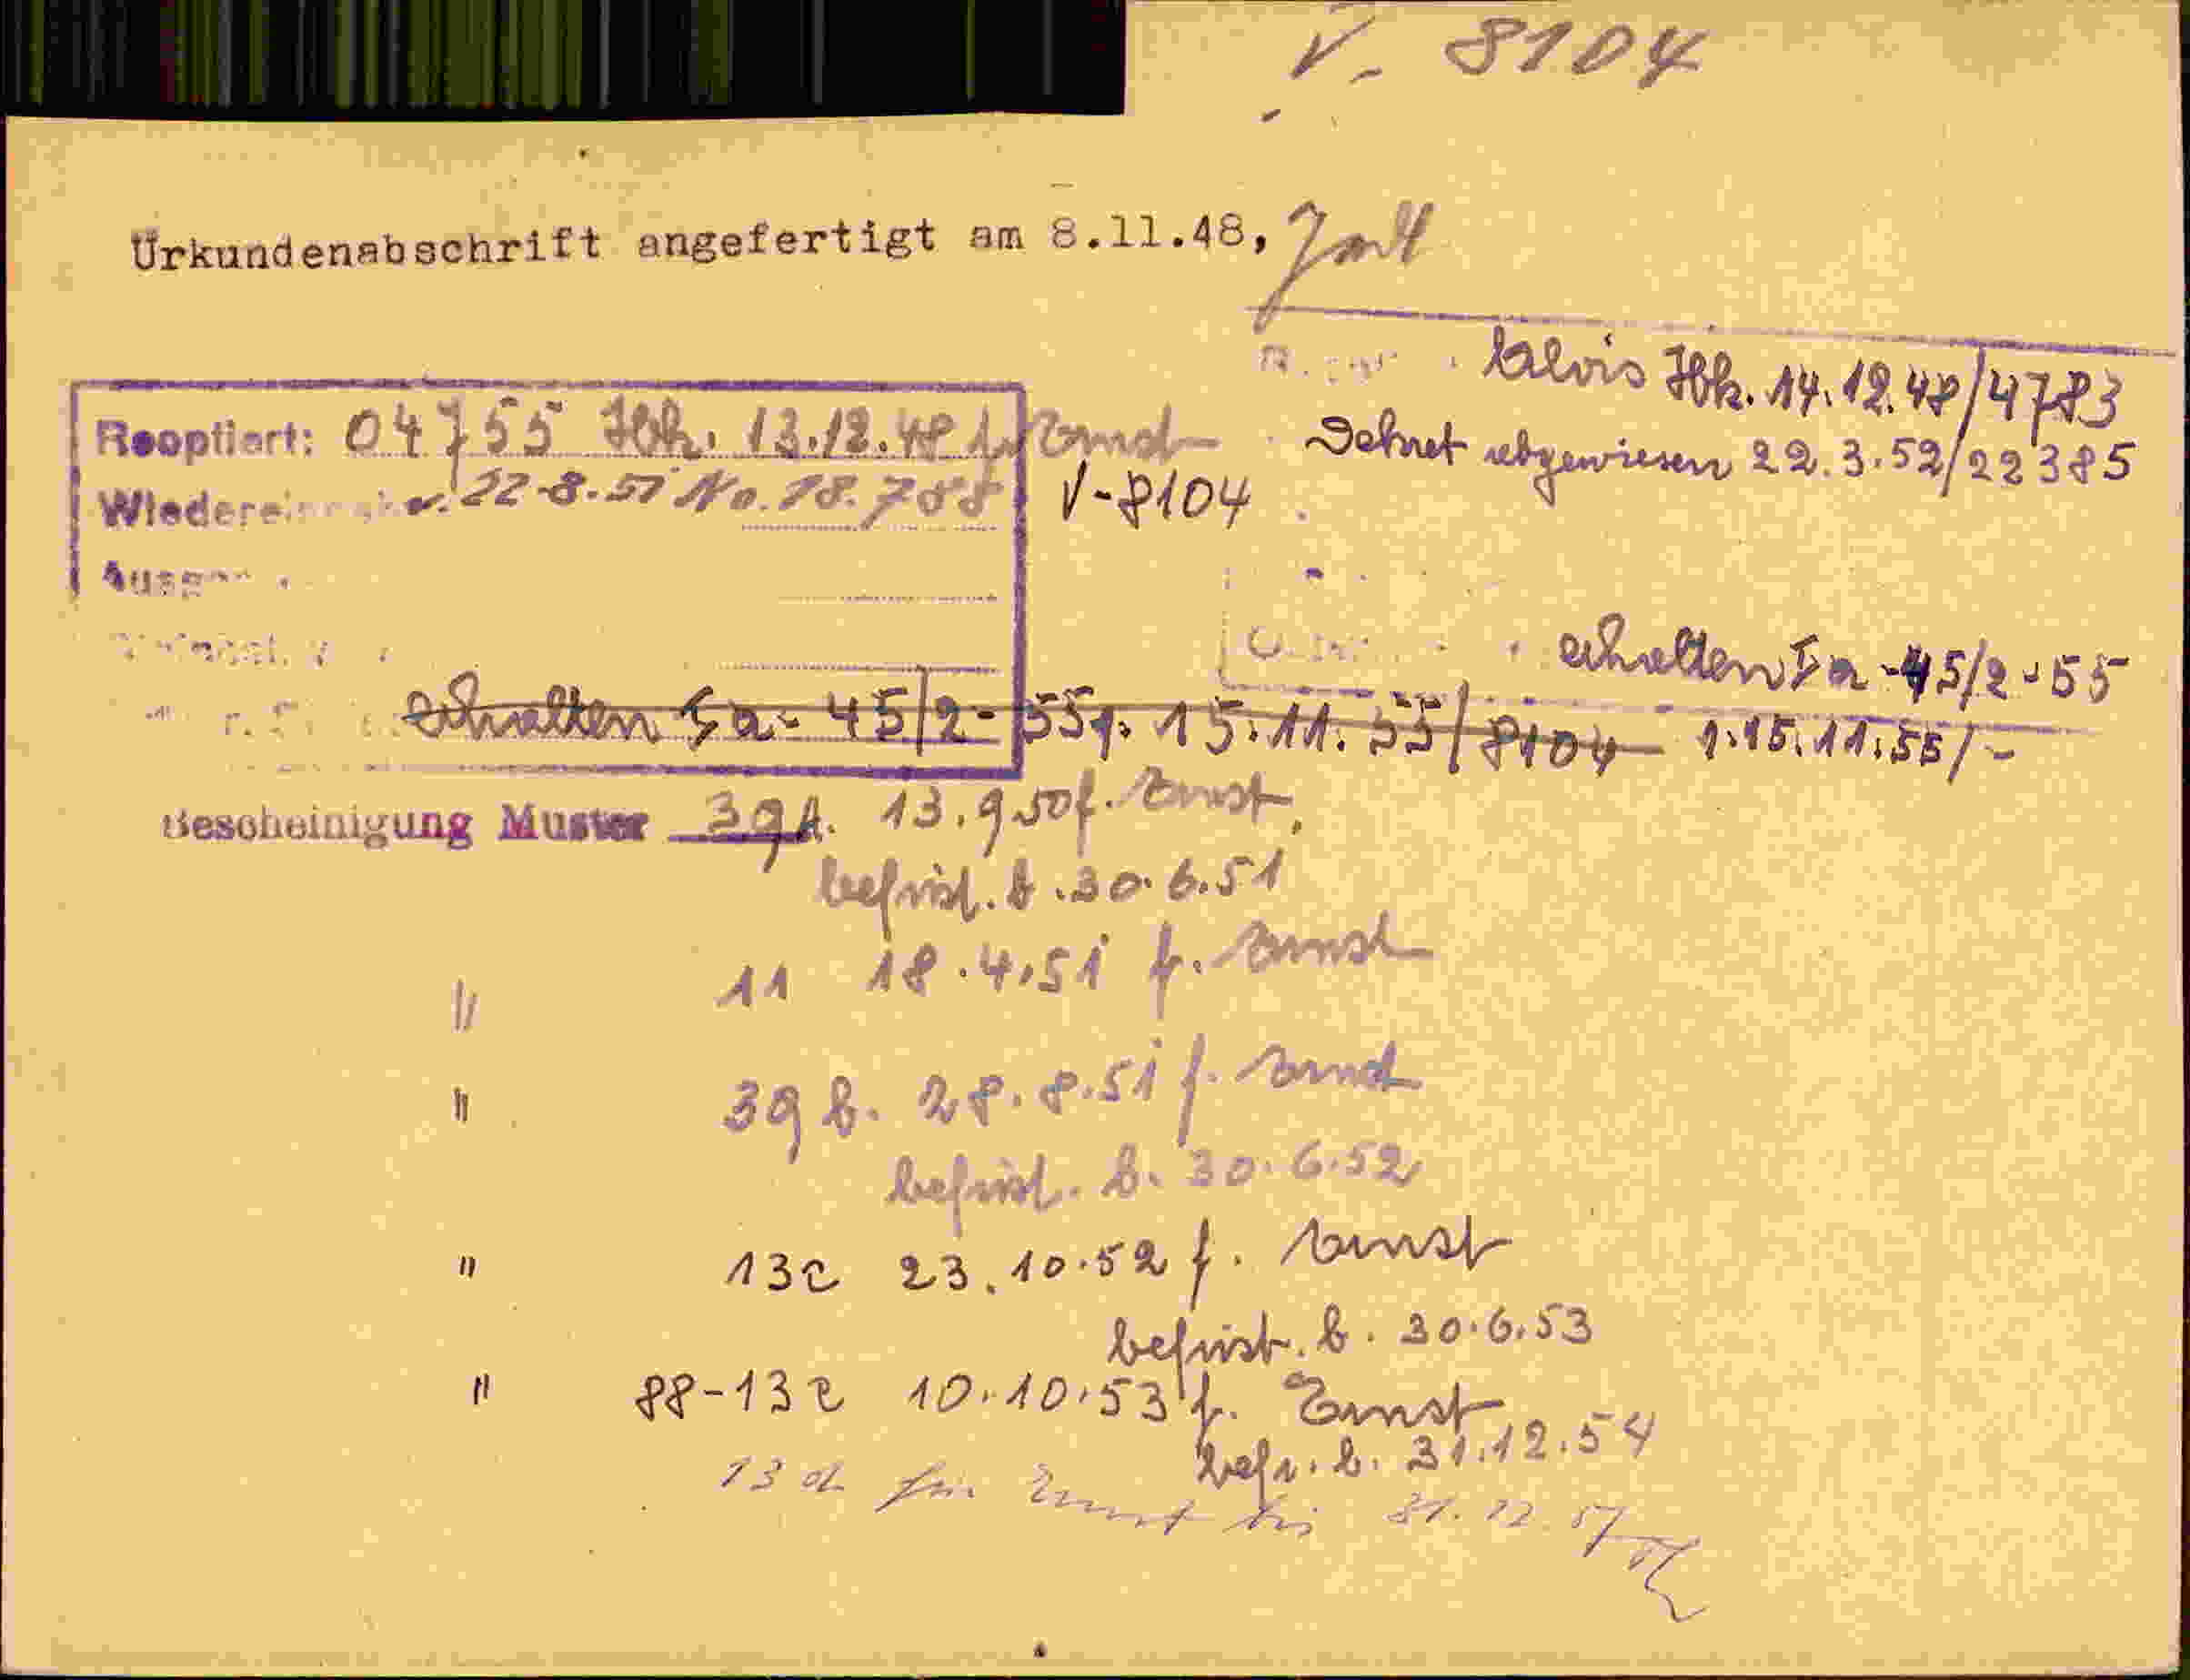 V. 8104
Urkundenabschrift angefertigt am 8.11.48,
Alois Hbk. 14.12.48/4783
Reoptiert: 04755 Hbk. 13.12.48 f. Ernst
Dekret abgewiesen 22.3.52/22385
v. 22.8.51 No. 18.788 V-8104
erhalten Fa-45/2-55
erhalten Fa-45/2-55 v. 15.11.55/8104 v. 15.11.55/-
Bescheinigung Muster 39A. 13.9.50 f. Ernst,
befrist. b. 30.6.51
" 11 18.4.51 f. Ernst
" 39 b. 28.8.51 f. Ernst
befrist. b. 30.6.52
" 13c 23.10.52 f. Ernst
befrist. b. 30.6.53
" 88-13c 10.10.53 f. Ernst
befr. b. 31.12.54
13 d für Ernst bis 31.12.57